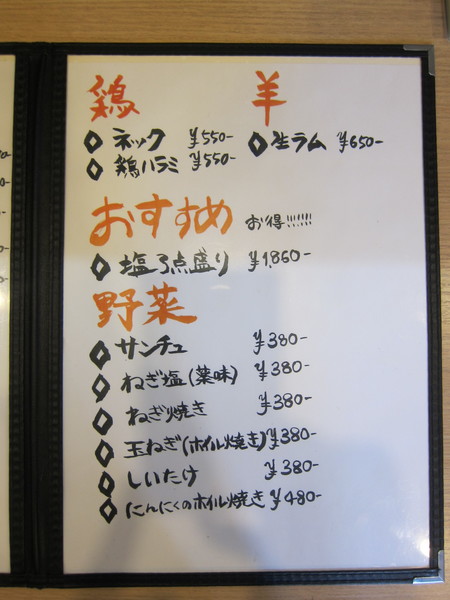 鶏
◇ ネック ¥550-
◇ 鶏ハラミ ¥550-
羊
◇ 生ラム ¥650-
おすすめ お得!!!!!!
◇ 塩3点盛り ¥1,860-
野菜
◇ サンチュ ¥380-
◇ ねぎ塩(薬味) ¥380-
◇ ねぎ焼き ¥380-
◇ 玉ねぎ(ホイル焼き) ¥380-
◇ しいたけ ¥380-
◇ にんにくのホイル焼き ¥480-